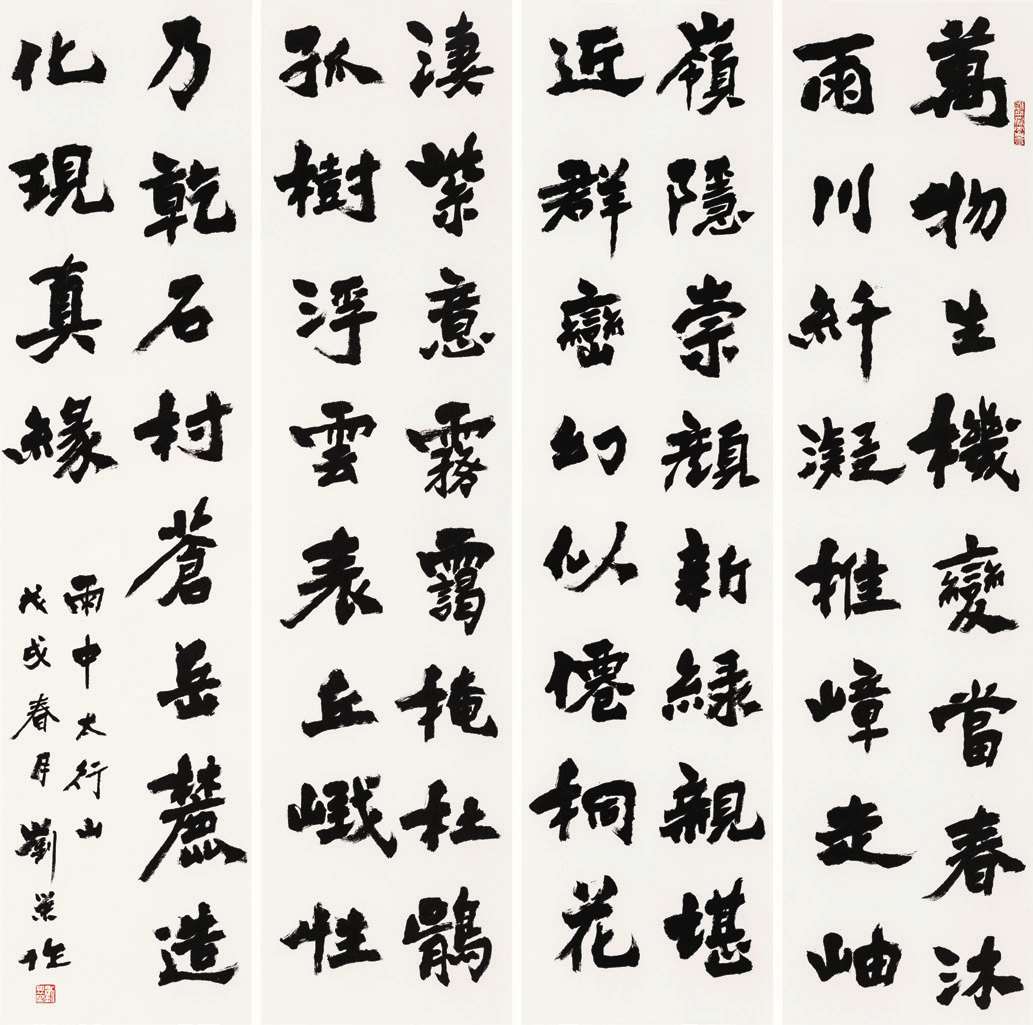 萬物生機變當春沐
雨川纤凝推嶂走岫
嶺隱崇顏新綠親堪
近群巒幻似僊桐花
淒紫意霧靄掩杜鵑
孤樹浮雲表丘峨性
乃乾石村蒼岳麓造
化現真緣
雨中太行山
戊戌春月劉榮作